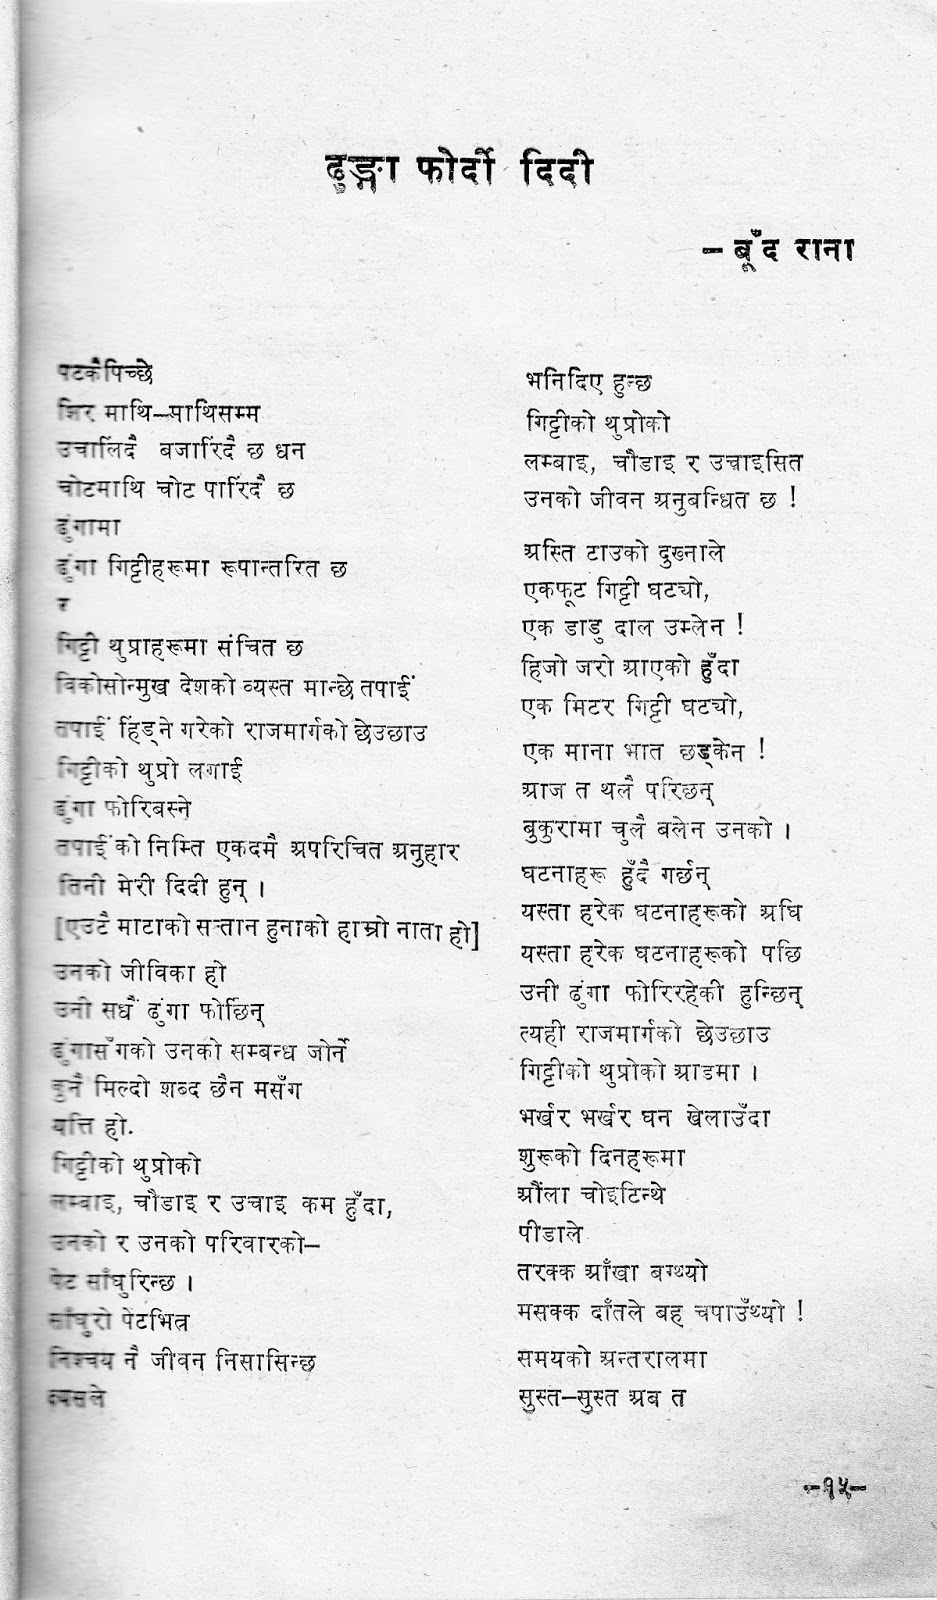 ढुङ्गा फोर्दो दिदी
– बूँद राना
पटकैपिच्छे
शिर माथि–माथिसम्म
उचालिंदै बजारिंदै छ धन
चोटमाथि चोट पारिंदै छ
ढुंगामा
ढुंगा गिट्टीहरूमा रूपान्तरित छ
र
गिट्टी थुप्राहरूमा संचित छ
विकोसोन्मुख देशको व्यस्त मान्छे तपाईं
तपाईं हिंड्ने गरेको राजमार्गको छेउछाउ
गिट्टीको थुप्रो लगाई
ढुंगा फोरिबस्ने
तपाईंको निम्ति एकदमै अपरिचित अनुहार
तिनी मेरी दिदी हुन् ।
[एउटै माटाको सन्तान हुनाको हाम्रो नाता हो]
उनको जीविका हो
उनी सधैं ढुंगा फोर्छिन्
ढुंगासँगको उनको सम्बन्ध जोर्ने
कुनै मिल्दो शब्द छैन मसँग
यत्ति हो.
गिट्टीको थुप्रोको
लम्बाइ, चौडाइ र उचाइ कम हुँदा,
उनको र उनको परिवारको–
पेट साँघुरिन्छ ।
साँघुरो पेटभित्र
निश्चय नै जीवन निसासिन्छ
त्यसले
भनिदिए हुन्छ
गिट्टीको थुप्रोको
लम्बाइ, चौडाइ र उच्चाइसित
उनको जीवन अनुबन्धित छ !
अस्ति टाउको दुख्नाले
एकफूट गिट्टी घट्यो,
एक डाडु दाल उम्लेन !
हिजो जरो आएको हुँदा
एक मिटर गिट्टी घट्यो,
एक माना भात छड्केन !
आज त थलै परिछन्
बुकुरामा चुलै बलेन उनको ।
घटनाहरू हुँदै गर्छन्
यस्ता हरेक घटनाहरूको अघि
यस्ता हरेक घटनाहरूको पछि
उनी ढुंगा फोरिरहेकी हुन्छिन्
त्यही राजमार्गको छेउछाउ
गिट्टीको थुप्रोको आडमा ।
भर्खर भर्खर घन खेलाउँदा
शुरूको दिनहरूमा
औंला चोइटिन्थे
पीडाले
तरक्क आँखा बग्थ्यो
मसक्क दाँतले बह चपाउँथ्यो !
समयको अन्तरालमा
सुस्त–सुस्त अब त
–१५–